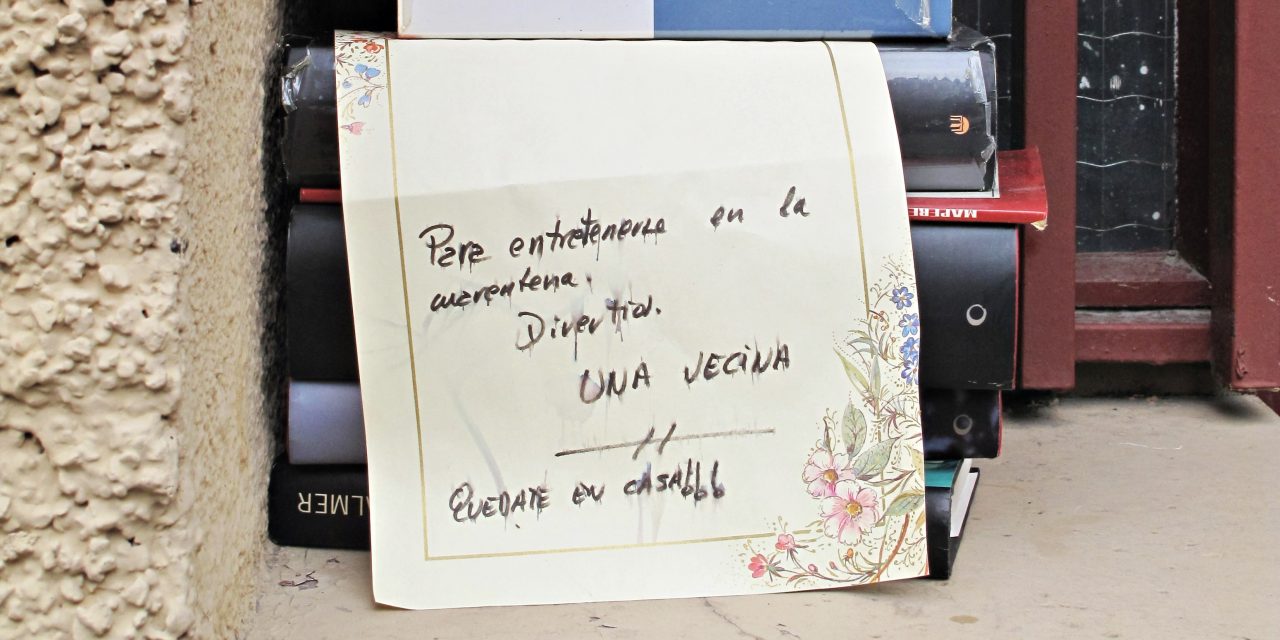 MAPFRE
Para entretenerse en la
cuarentena.
Divertios.
UNA VECINA
QUEDATE EN CASA!!!
ALMER